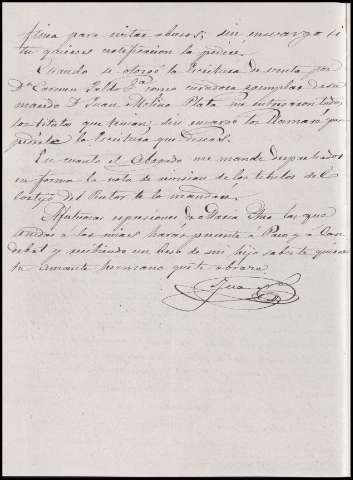 firma para evitar abusos, sin embargo si
tu quieres certificacion la pediré.
Cuando se otorgó la Escritura de venta por
Dª Carmen como curadora ejemplar de su
marido D. Juan Molina Plata no entregaron todos
los titulos que tenian, sin embargo los llaman por
la Escritura que deseas.
En cuanto el Abogado me mande despachados
en forma la nota de de los titulos del
Cortijo del te la mandaré.
Afectuosas espresiones de Maria las que
unidas a las mias harás presente á Paca y a Can-
delaria y recibiendo un beso de mi hijo sabes te quiere
tu amante hermano que te abraza